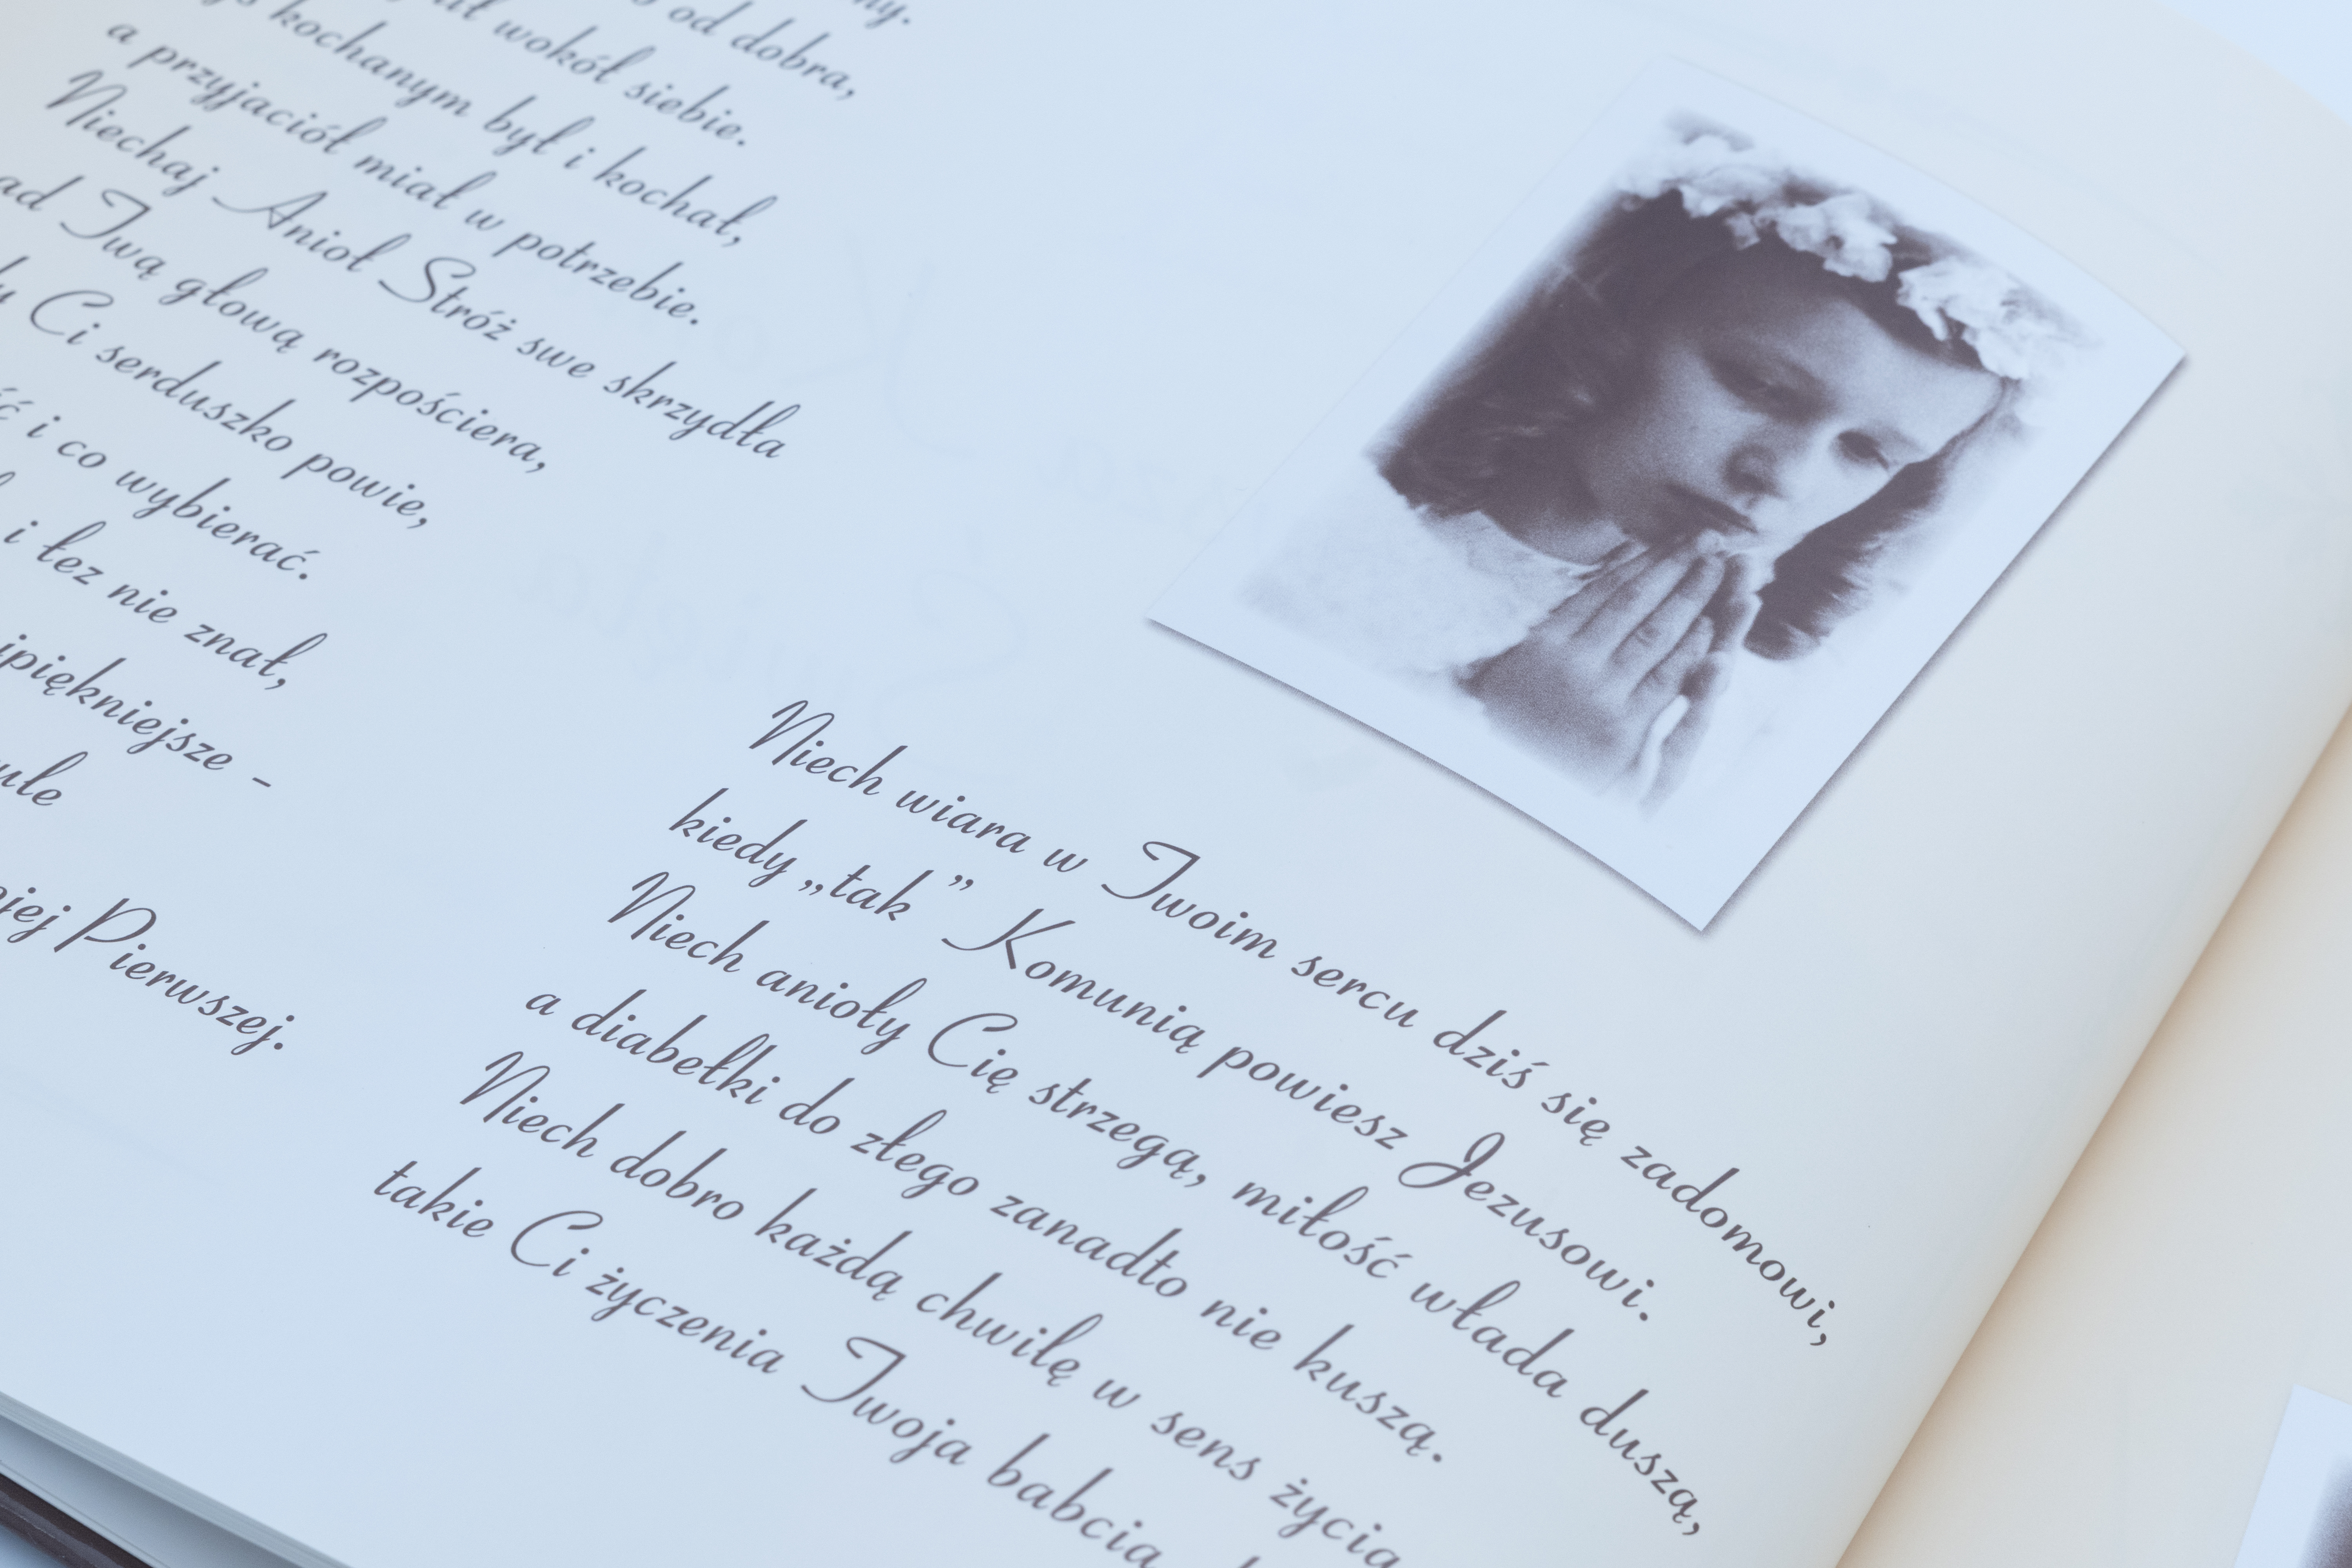 od dobra,
wokół siebie.
kochanym był i kochał,
a przyjaciół miał w potrzebie.
Niechaj Anioł Stróż swe skrzydła
Twą głową rozpościera,
Ci serduszko powie,
i co wybierać.
i łez nie znał,
-
Pierwszej.
Niech wiara w Twoim sercu dziś się zadomowi,
kiedy „tak” Komunią powiesz Jezusowi.
Niech anioły Cię strzegą, miłość włada duszą,
a diabełki do złego zanadto nie kuszą.
Niech dobro każdą chwilę w sens życia
takie Ci życzenia Twoja babcia